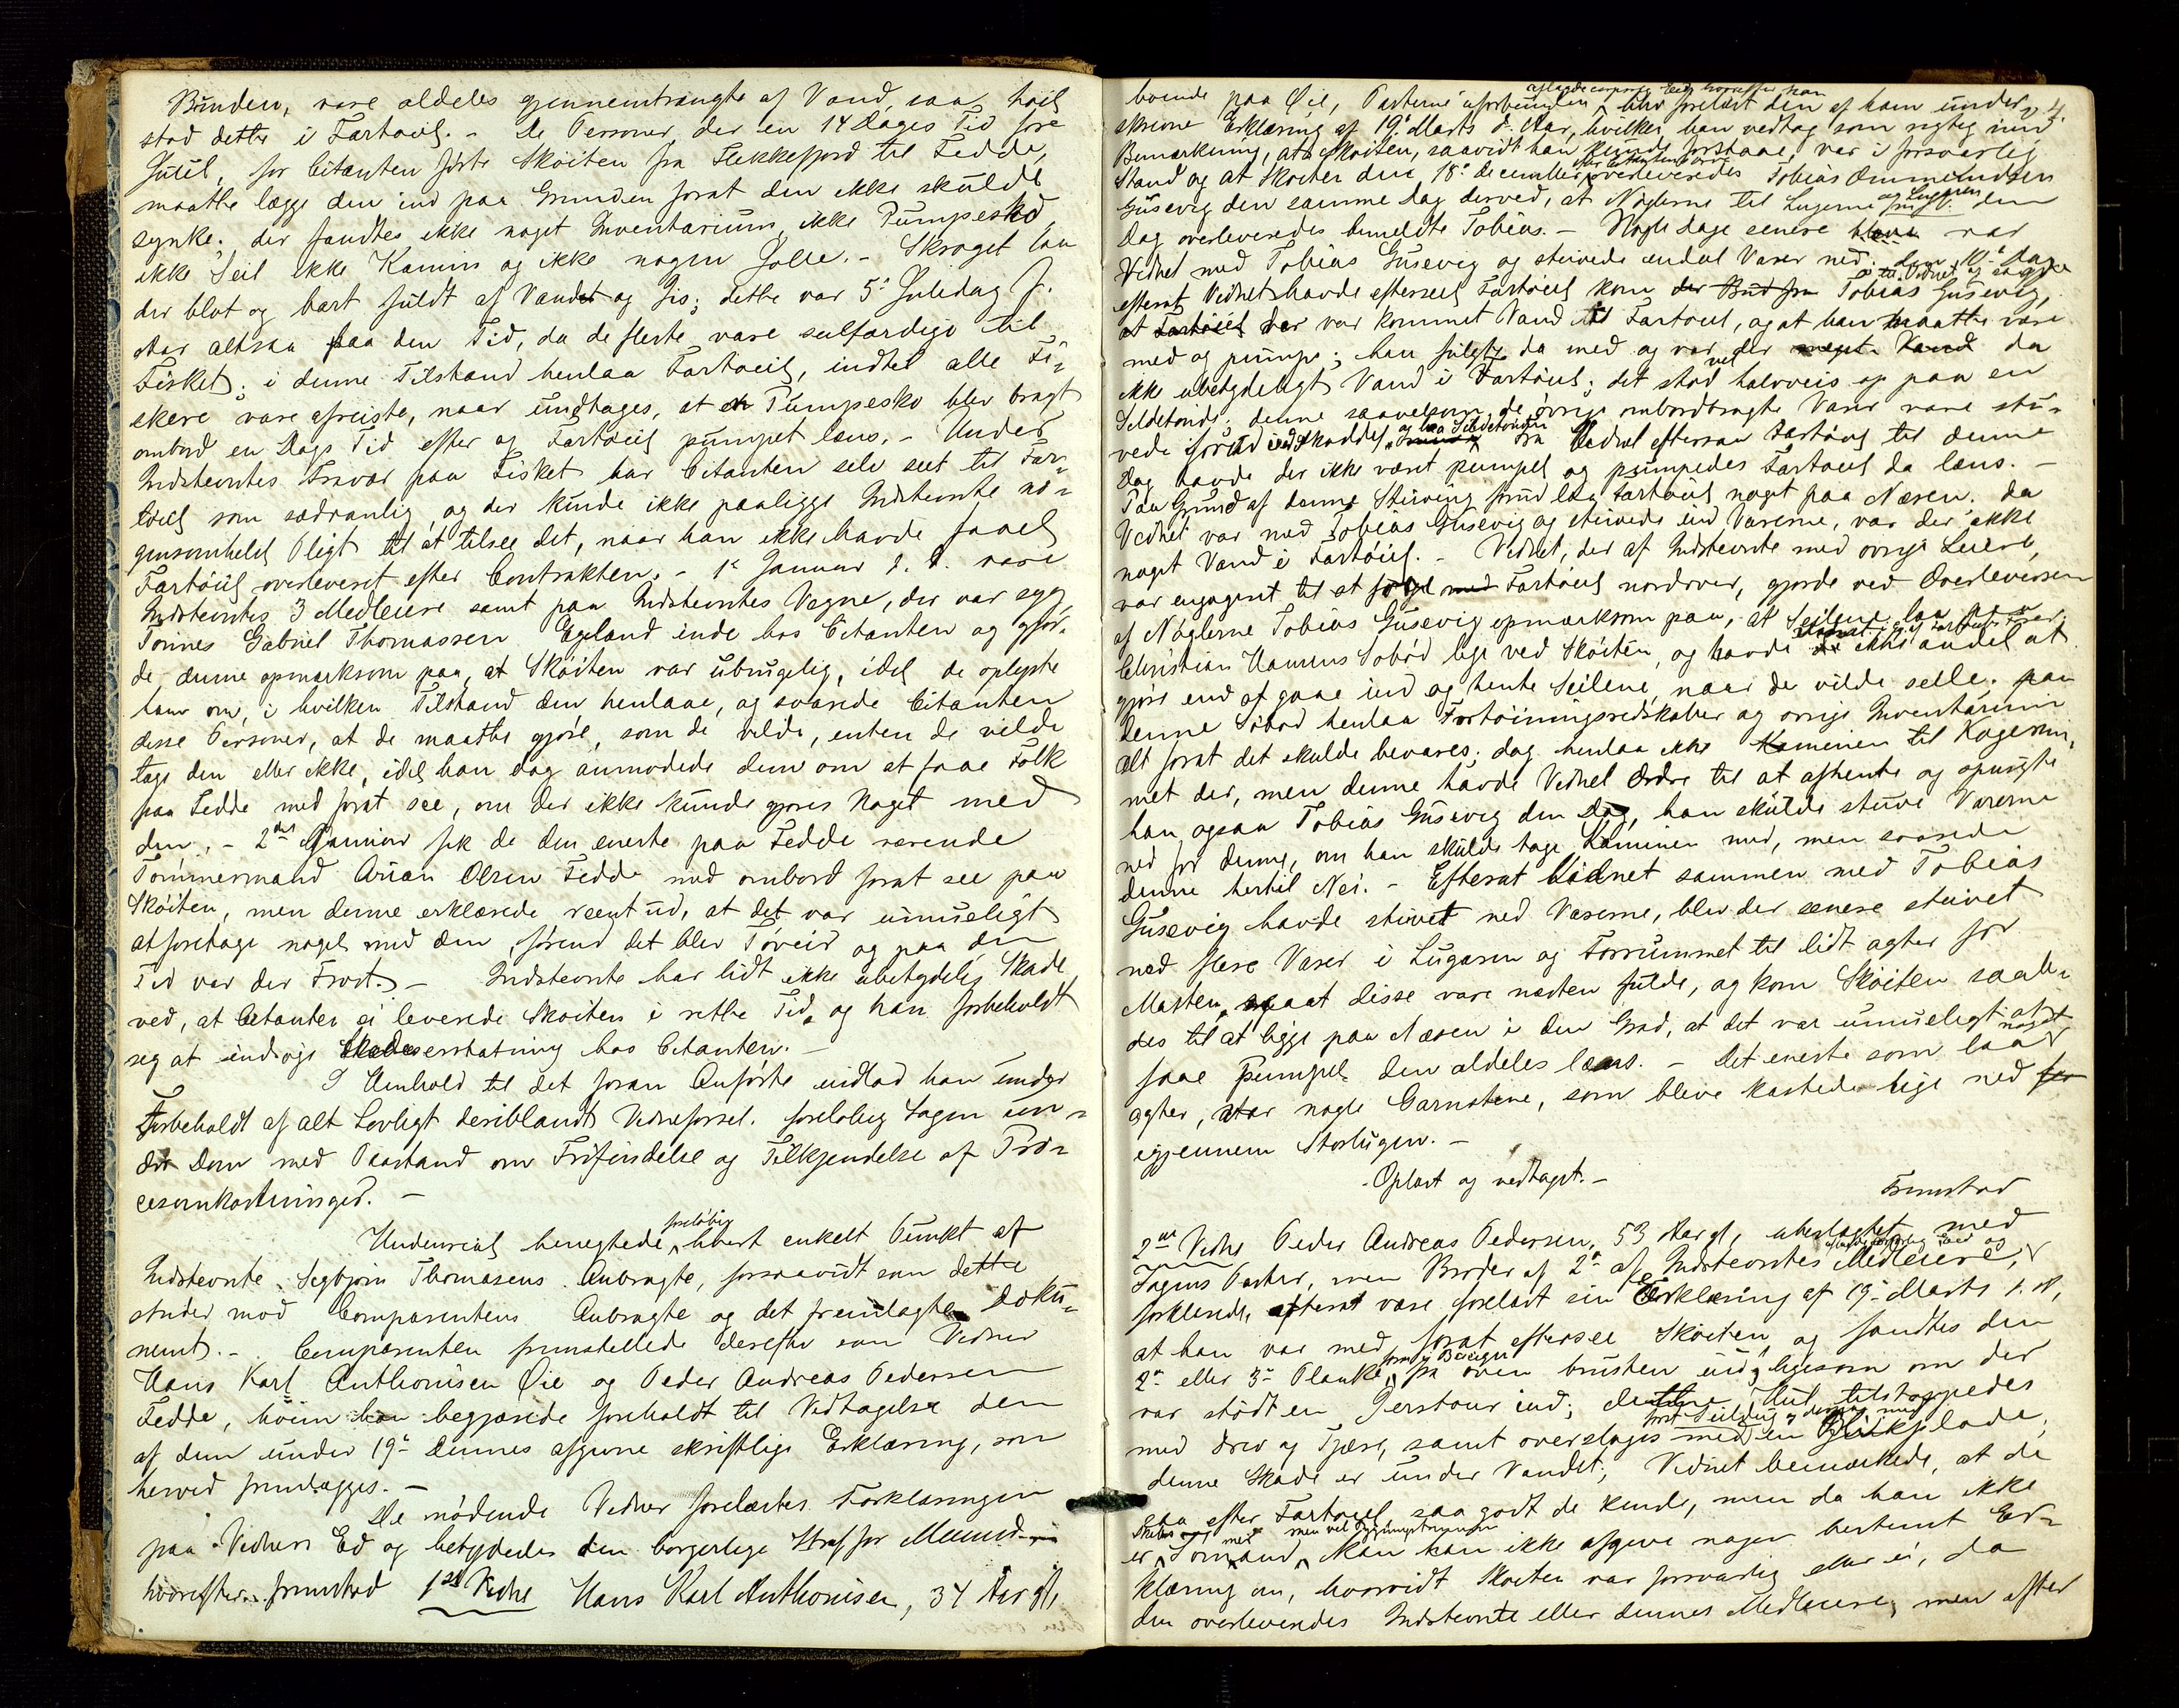 Bunden, vare aldeles gjennemtrængte af Vand, saa høit
stod dette i Fartøiet. - De Personer, der en 14 Dages Tid före
Juul, for Citanten førte Skøiten fra Flekkefjord til Fedde,
maatte lægge den ind paa Grunden forat den ikke skulde
synke; der fandtes ikke noget Inventarium, ikke Pumpesko,
ikke Seil ikke Kamin og ikke nogen Jolle. - Skroget laa
der blot og bart fuldt af Vandet og Jis; dette var 5te Juledag f.
Aar altsaa paa den Tid, da de fleste vare seilfærdige til
Fisket; i denne Tilstand henlaa Fartøiet, indtil alle Fi-
skere vare afreiste, naar undtages, at en Pumpesko blev bragt
ombord en Dags Tid efter og Fartøiet pumpet læns. - Under
Indstevntes Fravær paa Fisket har Citanten selv seet til Far-
tøiet som sædvanlig, og der kunde ikke paaligge Indstevnte no-
gensomhelst Pligt til at tilsee det, naar han ikke havde faaet
Fartøiet overleveret efter Contrakten. - 1e Januar d. A. vare
Indstevntes 3 Medleiere samt paa Indstevntes Vegne, der var syg,
Tønnes Gabriel Thomassen Egeland inde hos Citanten og gjor-
de denne opmærksom paa, at Skøiten var ubrugelig, idet de oplyste
ham om, i hvilken Tilstand den henlaae, og svarede Citanten
disse Personer, at de maatte gjøre, som de vilde, enten de vilde
tage den eller ikke, idet han dog anmodede dem om at faae Folk
paa Fedde med forat see, om der ikke kunde gjøres Noget med
den. - 2den Januar fik de den eneste paa Fedde værende
Tømmermand Arian Olsen Fedde med ombord forat see paa
Skøiten, men denne erklærede reent ud, at det var umueligt
at foretage noget med den, førend det blev Tøveir og paa den
Tid var der Frost. - Indstevnte har lidt ikke ubetydelig Skade
ved, at Citanten ei leverede Skøiten i rette Tid, og han forbeholdt
sig at indsøge Skadeserstatning hos Citanten. -
I Henhold til det foran Anførte indlod han under
Forbehold af alt Lovligt deriblandt Vidneførsel foreløbig Sagen un-
der Dom med Paastand om Frifindelse og Tilkjendelse af Pro-
cesomkostninger. -
Underveis benegtede foreløbig hvert enkelt Punkt af
Indstevnte Segbjørn Thomasens Anbragte, forsaavidt som dette
strider mod Comparentens Anbragte og det fremlagte Doku-
ment. - Comparenten fremstillede derefter som Vidner
Hans Karl Anthonisen Øie og Peder Andreas Pedersen
Fedde, hvem han begjærede foreholdt til Vedtagelse den
af dem under 19de dennes afgivne skriftlige Erklæring, som
herved fremlægges. -
De mødende Vidner forelæstes Forklaringen
paa Vidners Ed og betydedes den borgerlige Straf for Meened
hvorefter fremstod 1ste Vidne Hans Karl Anthonisen, 34 Aar gl,
aflagde corporlig Eed, hvorefter han
boende paa Øie, Parterne uforbunden, blev forelæst den af ham under-
skrevne Erklæring af 19de Marts d. Aar, hvilken han vedtog som rigtig med
Bemærkning, at Skøiten, saavidt han kunde forstaae, var i forsvarlig
Stand og at Skøiten den 18de December overleveredes Tobias Ommundsen
Gusevig den samme Dag derved, at Nøglerne til Lugerne og Luggeren den
Dag overleveredes bemeldte Tobias. - Nogle dage senere var
Vidnet med Tobias Gusevig og stuvede endel Varer ned; den 10de Dag
efterat Vidnet havde efterseet Fartøiet kom der Bud fra Tobias Gusevig, til Vidnet og sagde
at Fartøiet der var kommet Vand i Fartøiet, og at han maatte være
med og pumpe; han fulgte da med og var der meget Vand da
ikke ubetydeligt Vand i Fartøiet; det stod vel halvveis op paa en
Sildetønde; denne saavelsom de øvrige ombordbragte Varer vare stu-
vede forud ved Skoddet og laa Sildetønden Da Vidnet eftersaa Fartøiet til denne
Dag havde der ikke været pumpet og pumpedes Fartøiet da læns. -
Paa Grund af denne Stuvning forud laa Fartøiet noget paa Næsen. Da
Vidnet var med Tobias Gusevig og stuvede ind Varerne, var der ikke
noget Vand i Fartøiet. - Vidnet, der af Indstevnte med øvrige Leiere,
var engageret til at følge med Fartøiet nordover, gjorde ved Overleveringen
af Nøglerne Tobias Gusevig opmærksom paa, at Seilene laa paa
Christian Hansens Søbod lige ved Skøiten, og havde de ikke andet at
gjøre end at gaae ind og hente Seilene, naar de vilde seile. paa
denne Søbod henlaa Fortøiningsredskaber og øvrige Inventarium
alt forat det skulde bevares; dog henlaa ikke Kaminen til Kogerum-
met der, men denne havde Vidnet Ordre til at afhente og spurgte
han ogsaa Tobias Gusevig den Dag, han skulde stuve Varerne
ned for denne, om han skulde tage Kaminen med, men svarede
denne hertil Nei. - Efterat Vidnet sammen med Tobias
Gusevig havde stuvet ned Varerne, blev der senere stuvet
ned flere Varer i Lugaren og Forrummet til lidt agter for
Masten, saaat disse vare næsten fulde, og kom Skøiten saale-
des til at ligge paa Næsen i den Grad, at det var umueligt at
faae pumpet den aldeles læns. - Det eneste som laa noget
agter, var nogle Garnstene, som bleve kastede lige ned
igjennem Storlugen. -
Oplæst og vedtaget. -
Fremstod
2det Vidne Peder Andreas Pedersen, 53 Aar gl, ubeslægtet med
Sagens Parter, men Broder af 2de af Indstevntes Medleiere, aflagde corporlig Eed og
forklarede, efterat være forelæst sin Erklæring af 19de Marts d. A,
at han var med forat eftersee Skøiten, og fandtes den
2den eller 3die Planke, fra oven brusten ind, ligesom om der
var stødt en Jerstour ind; dette Hul tilstoppedes
med Drev og Tjære, samt overslages først Seildug og dernæst med en Blikplade;
denne Skade er under Vandet; Vidnet bemærkede, at de
saa efter Fartøiet saa godt de kunde, men da han ikke
er Sømand, kan han ikke afgive nogen bestemt Er-
klæring om, hvorvidt Skøiten var forsvarlig eller ei, da
den overleveredes Indstevnte eller dennes Medleiere, men efter